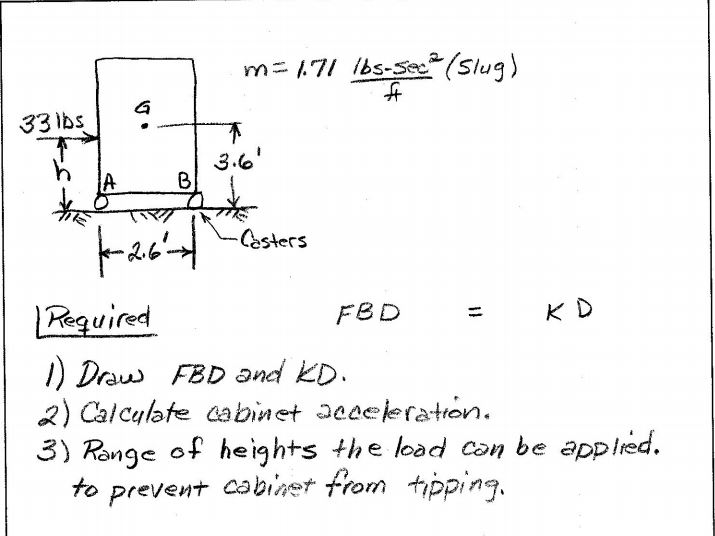 m = 1.71 lbs-sec² (slug)
ft
G
33 lbs
h
3.6'
A B
Casters
2.6'
Required
FBD = KD
1) Draw FBD and KD.
2) Calculate cabinet acceleration.
3) Range of heights the load can be applied.
to prevent cabinet from tipping.